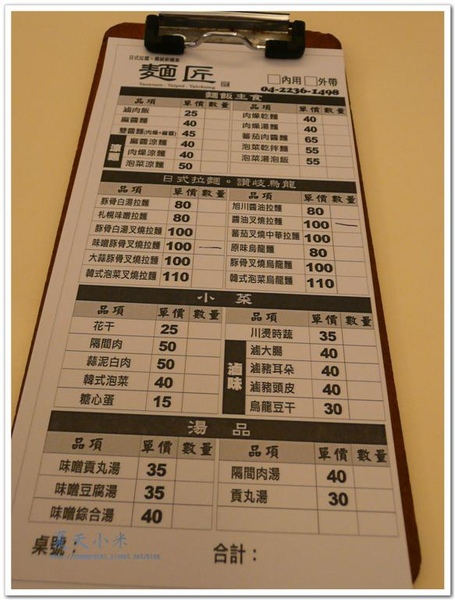 日式拉麵‧讚岐烏龍麵
麵匠
□內用 □外帶
04-2236-1498
麵飯主食
品項 單價 數量 品項 單價 數量
滷肉飯 25 肉燥乾麵 40
麻醬麵 40 肉燥湯麵 40
雙醬麵(肉燥+麻醬) 45 蕃茄肉醬麵 65
涼麵 麻醬涼麵 40 泡菜乾拌麵 55
肉燥涼麵 40 泡菜湯泡飯 55
泡菜涼麵 50
日式拉麵‧讚岐烏龍
品項 單價 數量 品項 單價 數量
豚骨白湯拉麵 80 旭川醬油拉麵 80
札幌味噌拉麵 80 醬油叉燒拉麵 100
豚骨白湯叉燒拉麵 100 蕃茄叉燒中華拉麵 100
味噌豚骨叉燒拉麵 100 原味烏龍麵 80
大蒜豚骨叉燒拉麵 100 豚骨叉燒烏龍麵 100
韓式泡菜叉燒拉麵 110 韓式泡菜烏龍麵 110
小菜
品項 單價 數量 品項 單價 數量
花干 25 川燙時蔬 35
隔間肉 50 滷味 滷大腸 40
蒜泥白肉 50 滷豬耳朵 40
韓式泡菜 40 滷豬頭皮 40
糖心蛋 15 烏龍豆干 30
湯品
品項 單價 數量 品項 單價 數量
味噌貢丸湯 35 隔間肉湯 40
味噌豆腐湯 35 貢丸湯 30
味噌綜合湯 40
桌號： 合計：
天小米